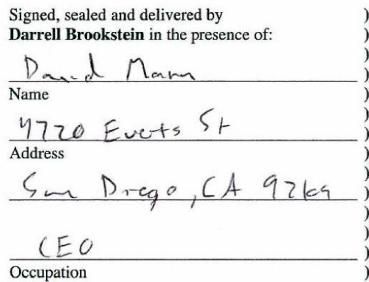 Signed, sealed and delivered by )
Darrell Brookstein in the presence of: )
)
David Mann )
Name )
)
4770 Everts St )
Address )
San Diego, CA 92109 )
)
CEO )
Occupation )